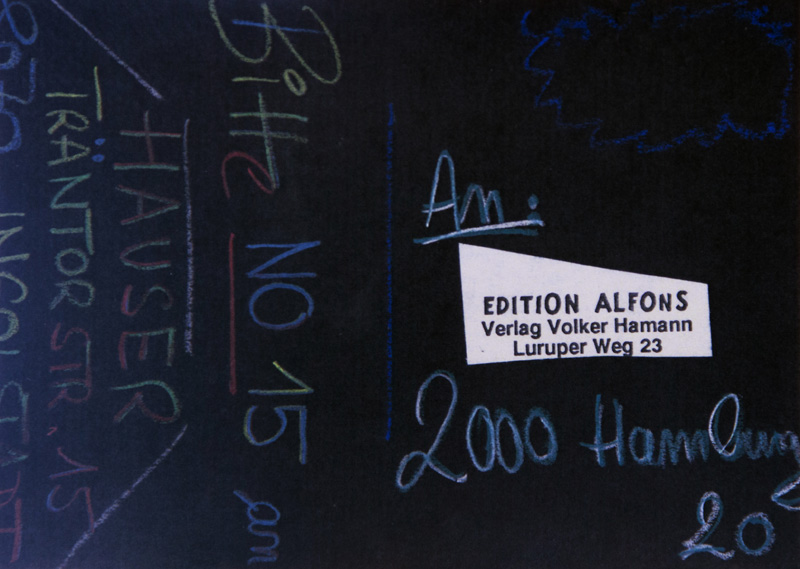 Bitte NO 15 an
HAUSER
TRÄNTORSTR. 15
8070 INGOLSTADT
An:
EDITION ALFONS
Verlag Volker Hamann
Luruper Weg 23
2000 Hamburg
20